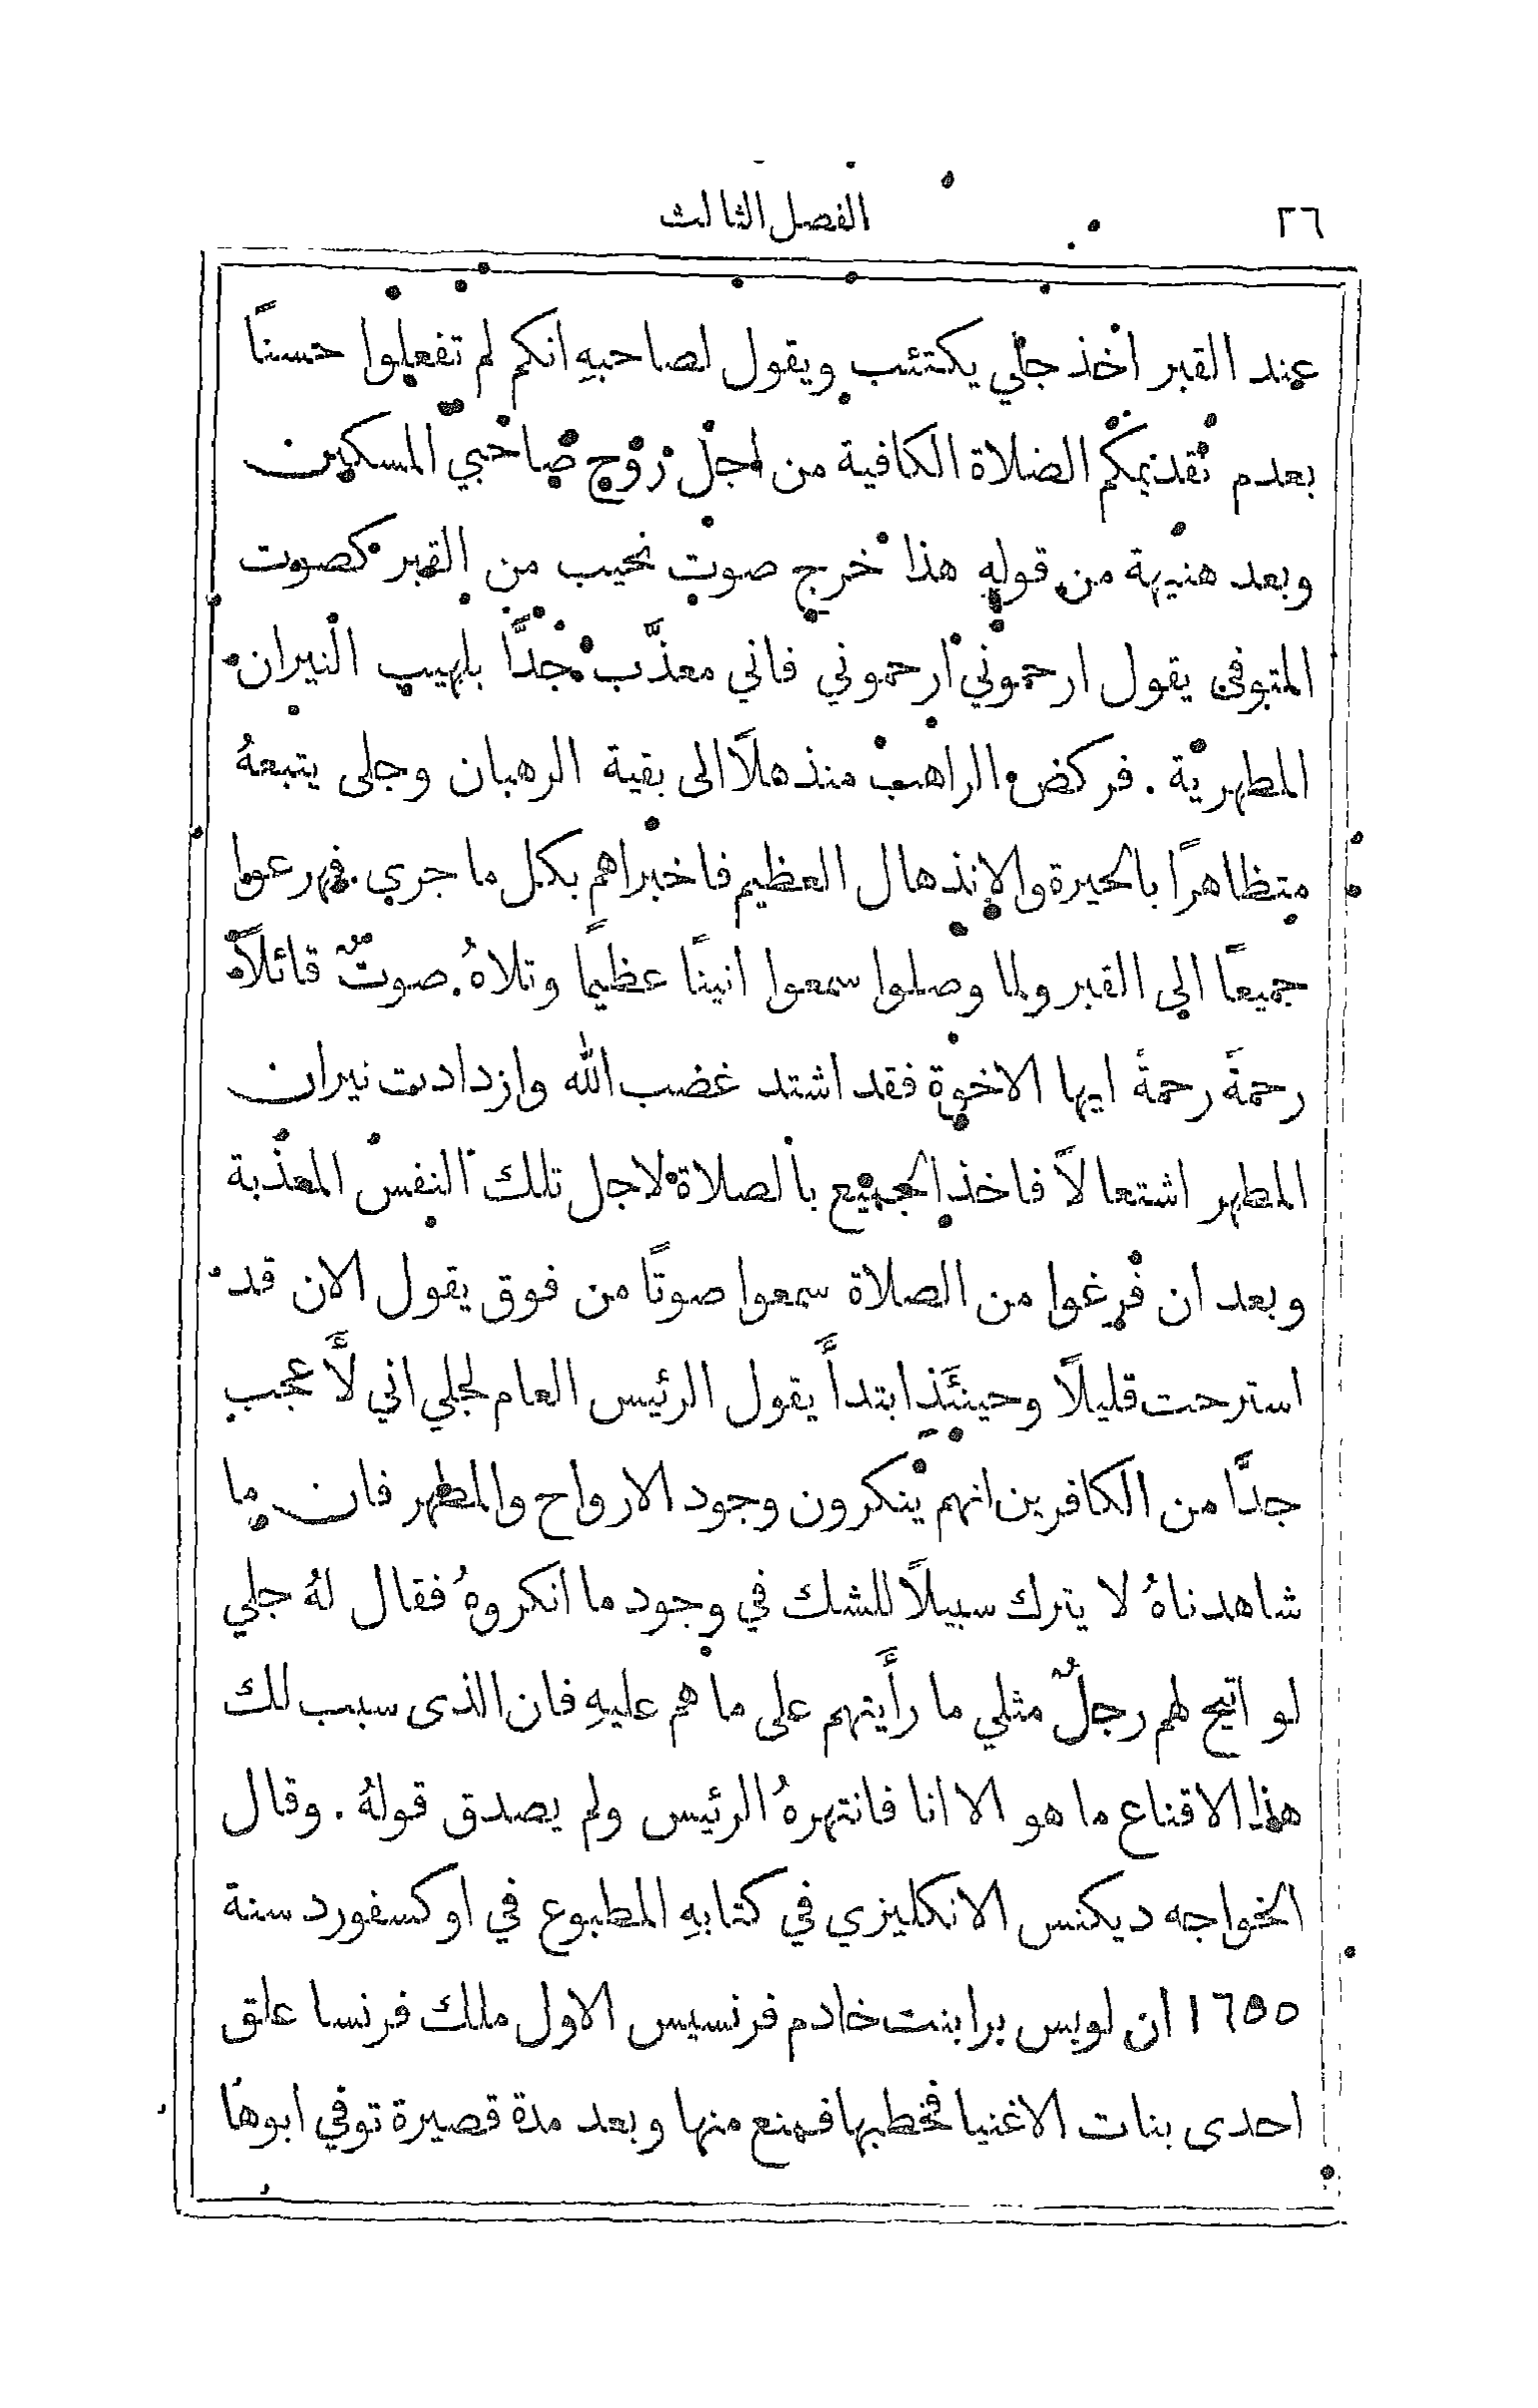 ٢٦
الفصل الثالث
عند القبر اخذ جلي يكتئب ويقول لصاحبهِ انكم لم تفعلوا حسنًا
بعدم تقديمكم الصلاة الكافية من اجل زوج صاحبي المسكين
وبعد هنيهة من قولهِ هذا خرج صوت نحيب من القبر كصوت
المتوفى يقول ارحموني ارحموني فاني معذَّب جدًّا بلهيب النيران
المطهرية . فركض الراهب منذهلًا الى بقية الرهبان وجلى يتبعهُ
متظاهرًا بالحيرة والانذهال العظيم فاخبراهم بكل ما جرى . فهرعوا
جميعًا الى القبر ولما وصلوا سمعوا انينًا عظيمًا وتلاهُ صوتٌ قائلًا
رحمةً رحمةً ايها الاخوة فقد اشتد غضب الله وازدادت نيران
المطهر اشتعالًا فاخذ الجميع بالصلاة لاجل تلك النفس المعذبة
وبعد ان فرغوا من الصلاة سمعوا صوتًا من فوق يقول الان قد
استرحت قليلًا وحينئَذٍ ابتدأَ يقول الرئيس العام لجلي اني لَأَعجب
جدًّا من الكافرين انهم ينكرون وجود الارواح والمطهر فان ما
شاهدناهُ لا يترك سبيلًا للشك في وجود ما انكروهُ فقال لهُ جلي
لو اتيح لهم رجلٌ مثلي ما رأَيتهم على ما هم عليهِ فان الذى سبب لك
هذا الاقناع ما هو الا انا فانتهرهُ الرئيس ولم يصدق قولهُ . وقال
الخواجه ديكنس الانكليزي في كتابهِ المطبوع في اوكسفورد سنة
١٦٥٥ ان لويس برا بنت خادم فرنسيس الاول ملك فرنسا علق
احدى بنات الاغنيا فخطبها فمنع منها وبعد مدة قصيرة توفي ابوها